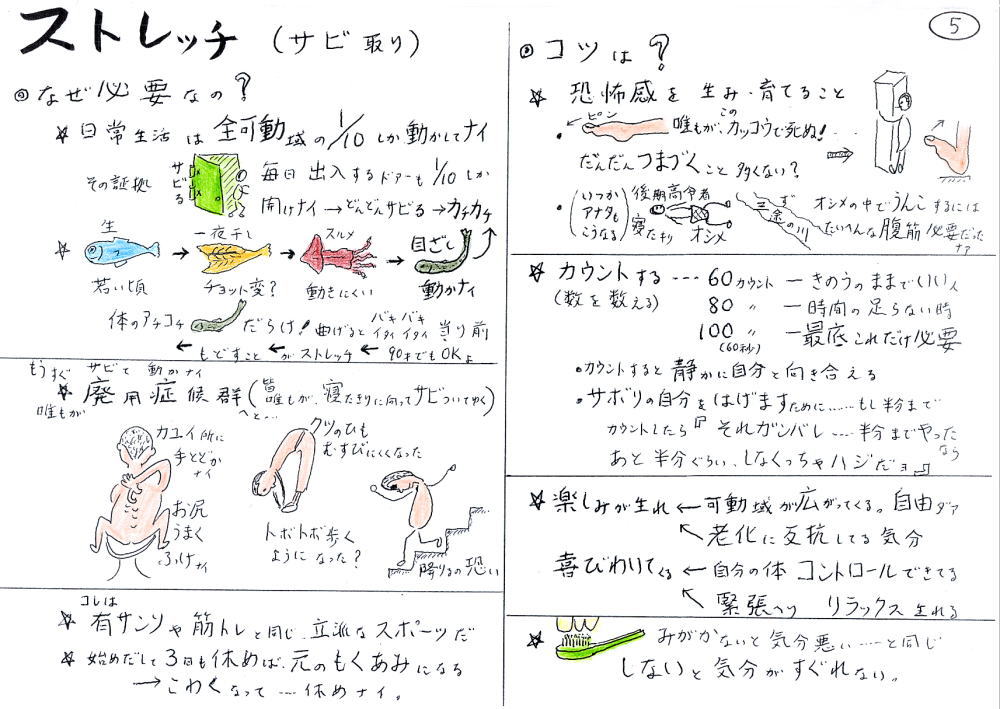 ストレッチ (サビ取り)
◎なぜ必要なの?
☆日常生活は全可動域の1/10しか動かしてナイ
その証拠
サビる
毎日出入するドアーも1/10しか
開けナイ→どんどんサビる→カチカチ
☆ 生 → 一夜干し → スルメ → 目ざし
若い頃 チョット変? 動きにくい 動かナイ
体のアチコチ だらけ! 曲げると バキバキ イタイイタイ 当り前
←もどすこと←がストレッチ←90才でもOKよ
もうすぐ サビて 動かナイ
☆廃用症候群(皆誰もが、寝たきりに向ってサビついてゆく)
誰もが
へと…
カユイ所に
手とどか
ナイ
お尻
うまく
ふけナイ
クツのひも
むすびにくくなった
トボトボ歩く
ようになった?
降りるの恐い
コレは
☆有サンソや筋トレと同じ、立派なスポーツだ
☆始めだして3日も休めば、元のもくあみになる
→こわくなって…休めナイ。
5
◎コツは?
☆恐怖感を生み・育てること
・ピン 誰もが、このカッコウで死ぬ!…
だんだんつまづくこと多くない?
・(いつかアナタもこうなる) 後期高令者 寝たキリ オシメ
三ず余の川
オシメの中でうんこするには
たいへんな腹筋必要だったナァ
☆カウントする ---- 60カウント ーきのうのままでいい人
(数を数える) 80 〃 ー時間の足らない時
100 〃 ー最底これだけ必要
(60秒)
・カウントすると静かに自分と向き合える
・サボリの自分をはげますために……もし半分まで
カウントしたら『それガンバレ…半分までやったなら
あと半分ぐらい、しなくっちゃハジだョ』
☆楽しみが生れ←可動域が広がってくる。自由ダァ
↖老化に反抗してる気分
喜びわりてくる←自分の体コントロールできてる
↖緊張へり リラックス生れる
☆ みがかないと気分悪い……と同じ
しないと気分がすぐれない。